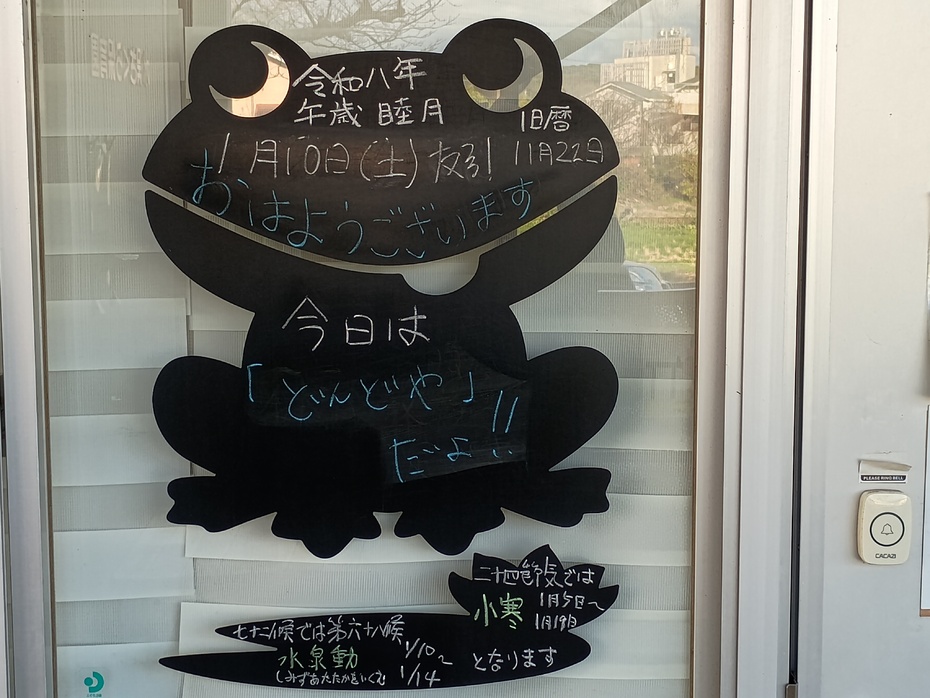 令和八年
午歳 睦月
旧暦
1月10日(土)友引 11月22日
おはようございます
今日は
「どんどや」
だよ!!
二十四節気では
小寒 1月5日~
1月19日
七十二候では第六十八候
水泉動 1/10~
しみずあたたかをいくむ 1/14
となります
PLEASE RING BELL
CACAZI